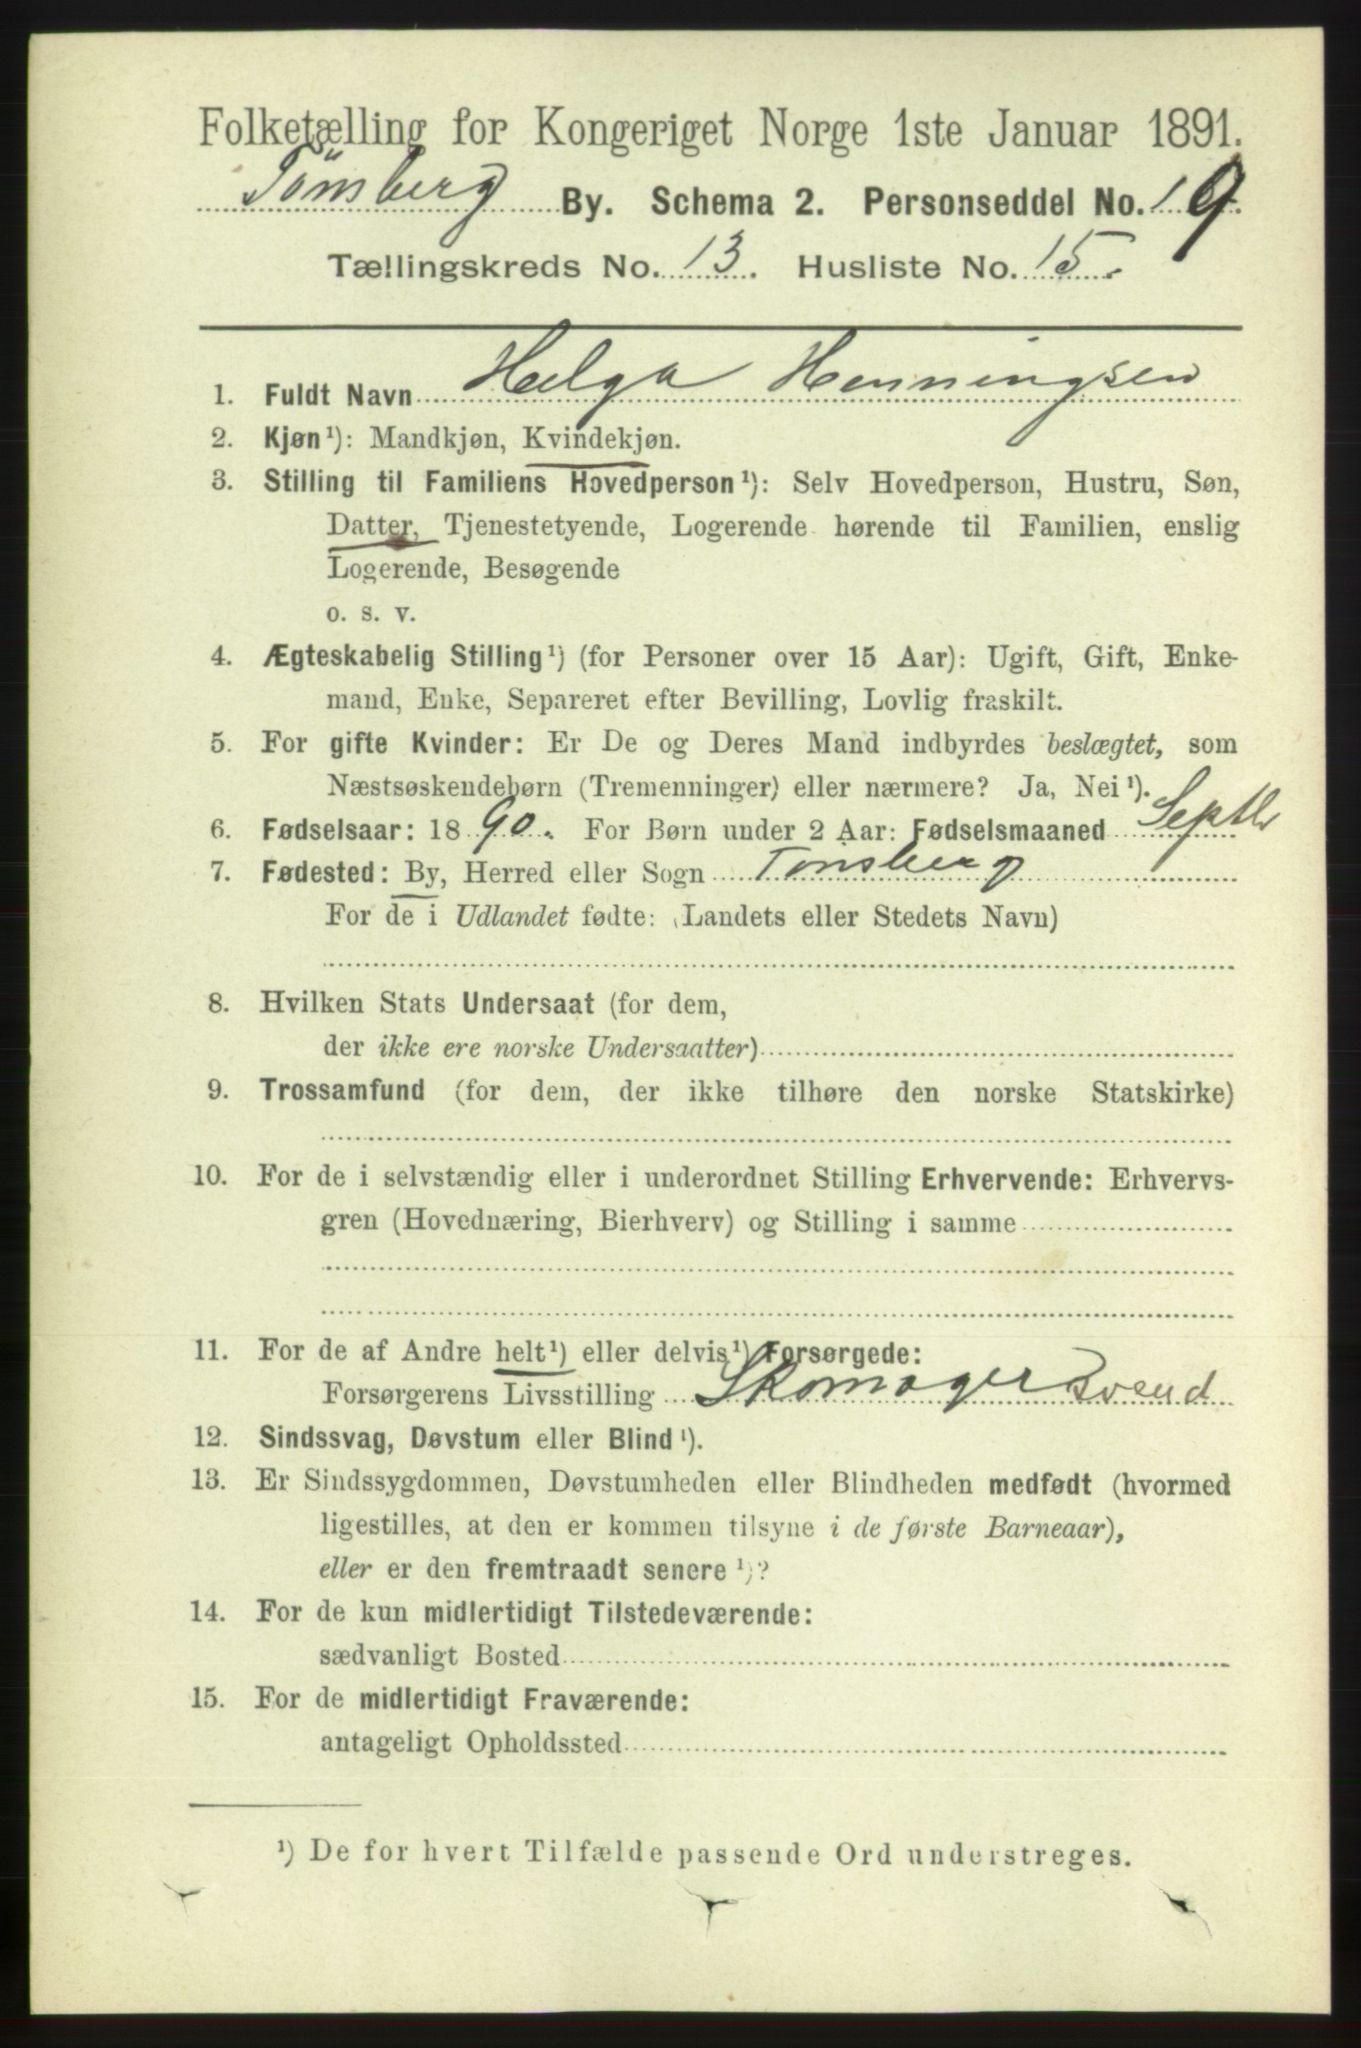 Folketælling for Kongeriget Norge 1ste Januar 1891.
Tönsberg By. Schema 2. Personseddel No. 19.
Tællingskreds No. 13. Husliste No. 15.
1. Fuldt Navn Helga Henningsen
2. Kjøn¹): Mandkjøn, Kvindekjøn.
3. Stilling til Familiens Hovedperson¹): Selv Hovedperson, Hustru, Søn,
Datter, Tjenestetyende, Logerende hørende til Familien, enslig
Logerende, Besøgende
o. s. v.
4. Ægteskabelig Stilling¹) (for Personer over 15 Aar): Ugift, Gift, Enke-
mand, Enke, Separeret efter Bevilling, Lovlig fraskilt.
5. For gifte Kvinder: Er De og Deres Mand indbyrdes beslægtet, som
Næstsøskendebørn (Tremenninger) eller nærmere? Ja, Nei¹).
6. Fødselsaar: 1890. For Børn under 2 Aar: Fødselsmaaned Septbr
7. Fødested: By, Herred eller Sogn Tonsberg
For de i Udlandet fødte: (Landets eller Stedets Navn)
8. Hvilken Stats Undersaat (for dem,
der ikke ere norske Undersaatter)
9. Trossamfund (for dem, der ikke tilhøre den norske Statskirke)
10. For de i selvstændig eller i underordnet Stilling Erhvervende: Erhvervs-
gren (Hovednæring, Bierhverv) og Stilling i samme
11. For de af Andre helt¹) eller delvis¹) Forsørgede:
Forsørgerens Livsstilling Skomagersvend
12. Sindssvag, Døvstum eller Blind¹).
13. Er Sindssygdommen, Døvstumheden eller Blindheden medfødt (hvormed
ligestilles, at den er kommen tilsyne i de første Barneaar),
eller er den fremtraadt senere¹)?
14. For de kun midlertidigt Tilstedeværende:
sædvanligt Bosted
15. For de midlertidigt Fraværende:
antageligt Opholdssted
¹) De for hvert Tilfælde passende Ord understreges.